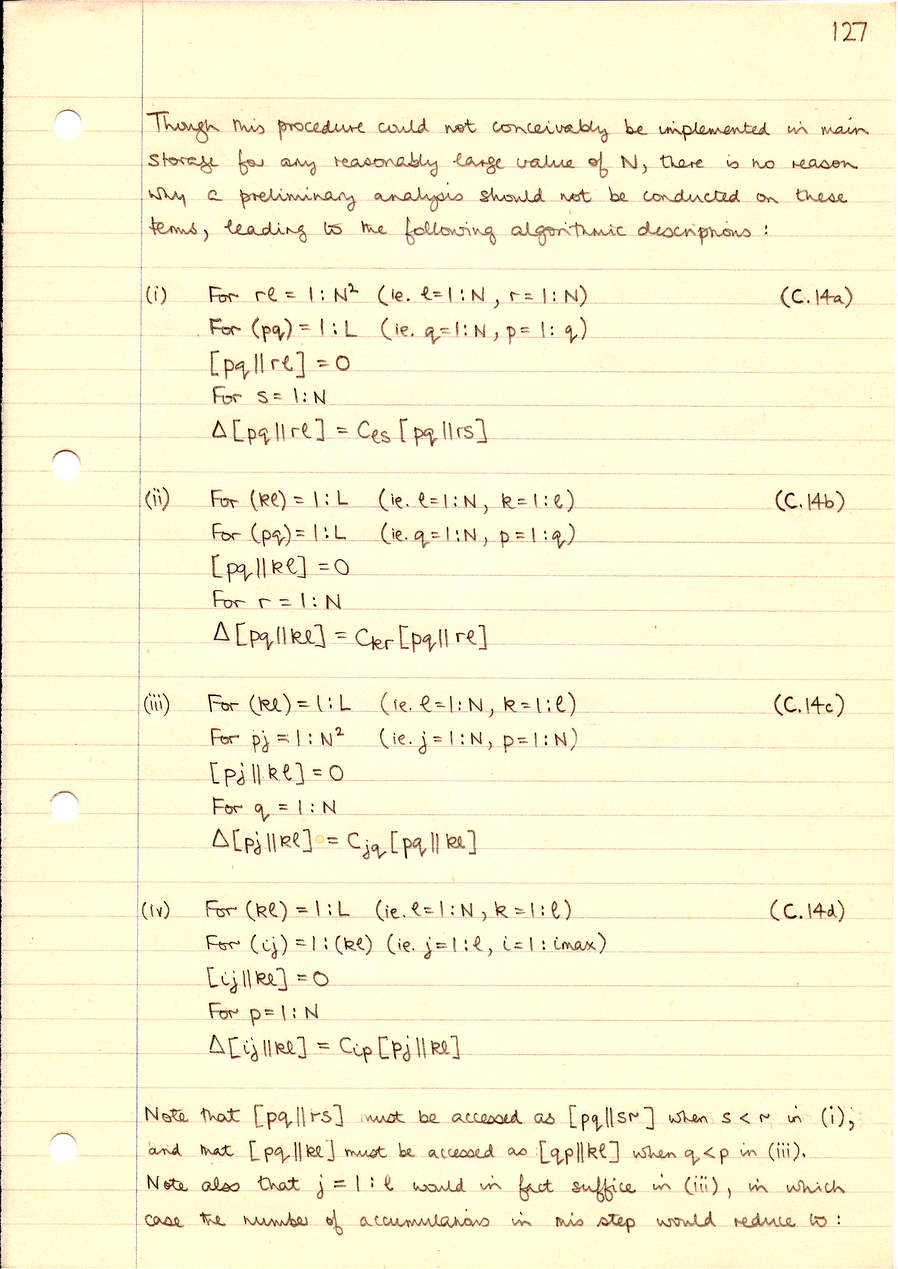 127
Though this procedure could not conceivably be implemented in main
storage for any reasonably large value of N, there is no reason
why a preliminary analysis should not be conducted on these
terms, leading to the following algorithmic descriptions :
(i) For rℓ = 1:N² (ie. ℓ=1:N, r=1:N) (C.14a)
For (pq) = 1:L (ie. q=1:N, p=1:q)
[pq||rℓ] = 0
For s = 1:N
Δ[pq||rℓ] = Cℓs [pq||rs]
(ii) For (kℓ) = 1:L (ie. ℓ=1:N, k=1:ℓ) (C.14b)
For (pq) = 1:L (ie. q=1:N, p=1:q)
[pq||kℓ] = 0
For r = 1:N
Δ[pq||kℓ] = Ckr [pq||rℓ]
(iii) For (kℓ) = 1:L (ie. ℓ=1:N, k=1:ℓ) (C.14c)
For pj = 1:N² (ie. j=1:N, p=1:N)
[pj||kℓ] = 0
For q = 1:N
Δ[pj||kℓ] = Cjq [pq||kℓ]
(iv) For (kℓ) = 1:L (ie. ℓ=1:N, k=1:ℓ) (C.14d)
For (ij) = 1:(kℓ) (ie. j=1:ℓ, i=1:imax)
[ij||kℓ] = 0
For p = 1:N
Δ[ij||kℓ] = Cip [pj||kℓ]
Note that [pq||rs] must be accessed as [pq||sr] when s < r in (i);
and that [pq||kℓ] must be accessed as [qp||kℓ] when q < p in (iii).
Note also that j = 1:ℓ would in fact suffice in (iii), in which
case the number of accumulations in this step would reduce to :